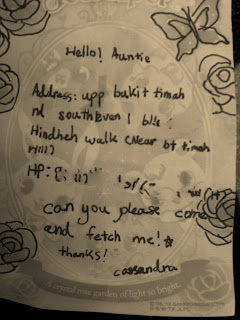 Hello! Auntie
Address: upp bukit timah
rd southEven 1 blk:
Hindheh walk (Near bt timah
Hill)
HP:
can you please come
and fetch me!
thanks!
cassandra
A crystal rose garden of light so bright.